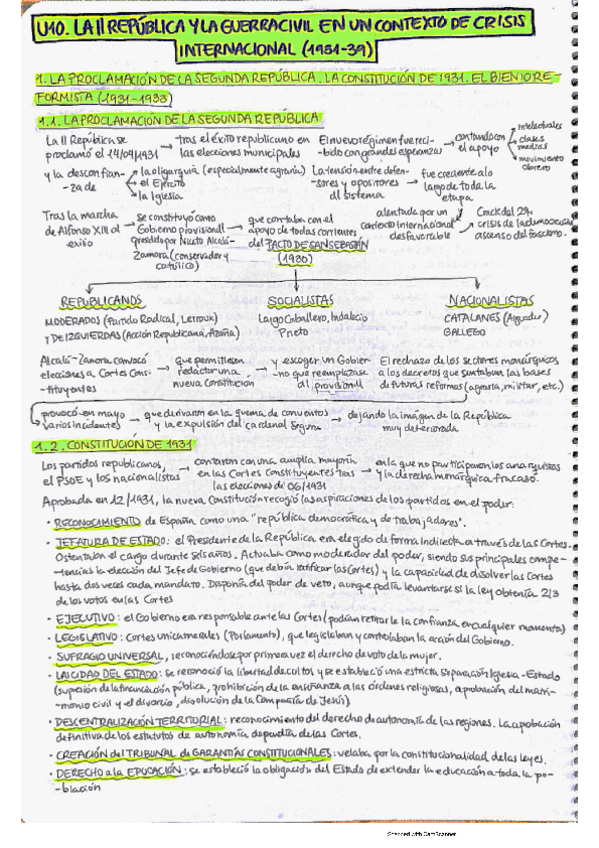 U10. LA II REPÚBLICA Y LA GUERRA CIVIL EN UN CONTEXTO DE CRISIS
INTERNACIONAL (1931-39)
1. LA PROCLAMACIÓN DE LA SEGUNDA REPÚBLICA. LA CONSTITUCIÓN DE 1931. EL BIENIO RE-
FORMISTA (1931-1933)
1.1. LA PROCLAMACIÓN DE LA SEGUNDA REPÚBLICA
La II República se proclamó el 14/04/1931 → tras el éxito republicano en las elecciones municipales
El nuevo régimen fue reci-bido con grandes esperanzas → contando con el apoyo → intelectuales
clases medias
movimiento obrero
y la desconfian-za de → la oligarquía (especialmente agraria)
el Ejército
la Iglesia
La tensión entre defen-sores y opositores al sistema → fue creciente a lo largo de toda la etapa
Tras la marcha de Alfonso XIII al exilio → se constituyó como Gobierno provisional presidido por Niceto Alcalá-Zamora (conservador y católico) → que contaba con el apoyo de todas corrientes del PACTO DE SAN SEBASTIÁN (1930)
alentada por un contexto internacional desfavorable → Crack del 29, crisis de la democracia, ascenso del fascismo.
REPUBLICANOS
MODERADOS (Partido Radical, Lerroux)
Y DE IZQUIERDAS (Acción Republicana, Azaña)
SOCIALISTAS
Largo Caballero, Indalecio
Prieto
NACIONALISTAS
CATALANES (Aiguader)
GALLEGO
Alcalá-Zamora convocó elecciones a Cortes Cons-tituyentes → que permitiesen redactar una nueva Constitución → y escoger un Gobier-no que reemplazase al provisional
El rechazo de los sectores monárquicos a los decretos que sentaban las bases de futuras reformas (agraria, militar, etc.)
provocó en mayo varios incidentes → que derivaron en la quema de conventos y la expulsión del cardenal Segura → dejando la imagen de la República muy deteriorada
1.2. CONSTITUCIÓN DE 1931
Los partidos republicanos, el PSOE y los nacionalistas → contaron con una amplia mayoría en las Cortes Constituyentes tras las elecciones de 06/1931 → en la que no participaron los anarquistas y la derecha monárquica fracasó.
Aprobada en 12/1931, la nueva Constitución recogió las aspiraciones de los partidos en el poder:
· RECONOCIMIENTO de España como una "república democrática y de trabajadores".
· JEFATURA DE ESTADO: el Presidente de la República era elegido de forma indirecta a través de las Cortes.
Ostentaba el cargo durante seis años. Actuaba como moderador del poder, siendo sus principales compe-
tencias la elección del Jefe de Gobierno (que debían ratificar las Cortes) y la capacidad de disolver las Cortes
hasta dos veces cada mandato. Disponía del poder de veto, aunque podía levantarse si la ley obtenía 2/3
de los votos en las Cortes
· EJECUTIVO: el Gobierno era responsable ante las Cortes (podían retirarle la confianza en cualquier momento)
· LEGISLATIVO: Cortes unicamerales (Parlamento), que legislaban y controlaban la acción del Gobierno.
· SUFRAGIO UNIVERSAL, reconociéndose por primera vez el derecho de voto de la mujer.
· LAICIDAD DEL ESTADO: se reconoció la libertad de cultos y se estableció una estricta separación Iglesia-Estado
(supresión de la financiación pública, prohibición de la enseñanza a las órdenes religiosas, aprobación del matri-
monio civil y el divorcio, disolución de la Compañía de Jesús)
· DESCENTRALIZACIÓN TERRITORIAL: reconocimiento del derecho de autonomía de las regiones. La aprobación
definitiva de los estatutos de autonomía dependía de las Cortes.
· CREACIÓN del TRIBUNAL de GARANTÍAS CONSTITUCIONALES: velaba por la constitucionalidad de las leyes.
· DERECHO a la EDUCACIÓN: se estableció la obligación del Estado de extender la educación a toda la po-
blación
Scanned with CamScanner